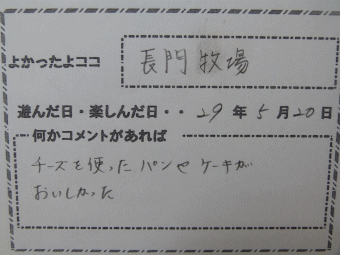 よかったよココ 長門牧場
遊んだ日・楽しんだ日・・ 29 年 5 月 20 日
何かコメントがあれば
チーズを使ったパンやケーキが
おいしかった